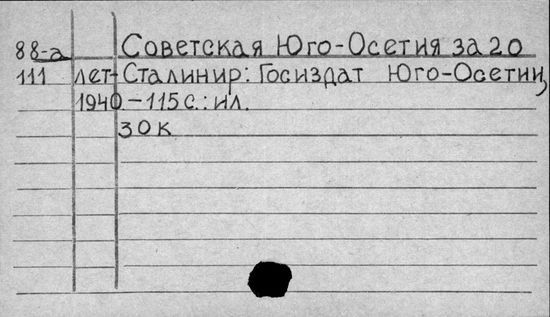 88-а Советская Юго-Осетия за 20
111 лет - Сталинир: Госиздат Юго-Осетии,
1940. - 115 с.: ил.
30 к